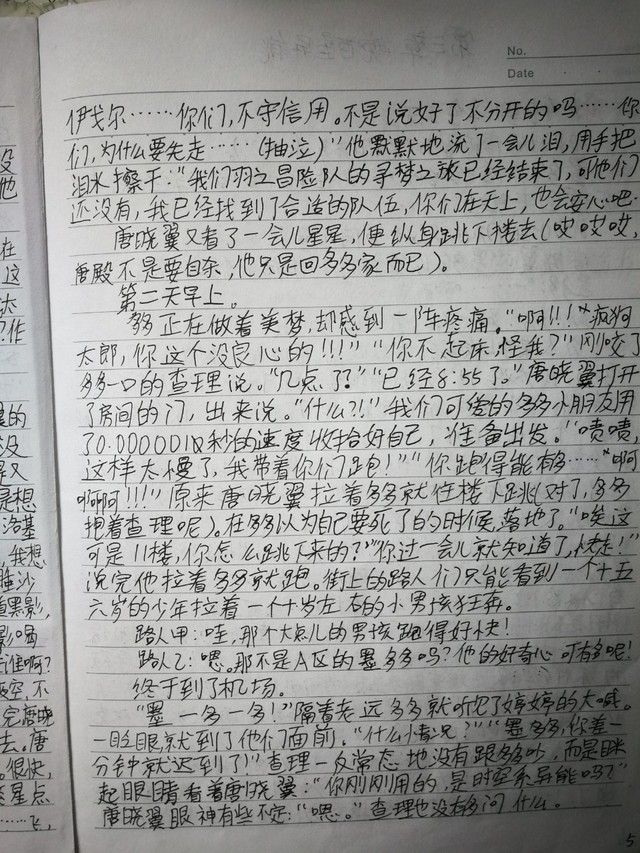 No.
Date
伊戈尔……你们,不守信用。不是说好了不分开的吗……你
们,为什么要先走……(抽泣)”他默默地流了一会儿泪,用手把
泪水擦干:“我们羽之冒险队的寻梦之旅已经结束了,可他们
还没有,我已经找到了合适的队伍,你们在天上,也会安心吧.
唐晓翼又看了一会儿星星,便纵身跳下楼去(哎哎哎,
唐殿不是要自杀,他只是回多多家而已)。
第二天早上。
多多正在做着美梦,却感到一阵疼痛。“啊!!!”“疯狗
太郎,你这个没良心的!!!”“你不起床,怪我?”刚咬了
多多一口的查理说。“几点了?”“已经8:55了。”唐晓翼打开
了房间的门,出来说。“什么?!”我们可爱的多多小朋友用
了0.0000001秒的速度收拾好自己,准备出发。“啧啧,
这样太慢了,我带着你们跑!”“你跑得能有多……”啊
啊啊!!!”原来唐晓翼拉着多多就往楼下跳(对了,多多
抱着查理呢)。在多多以为自己要死了的时候,落地了。“唉这
可是11楼,你怎么跳下来的?”“你过一会儿就知道了,快走!”
说完他拉着多多就跑。街上的路人们只能看到一个十五
六岁的少年拉着一个十岁左右的小男孩狂奔。
路人甲:哇,那个大点儿的男孩跑得好快!
路人乙:嗯。那不是A区的墨多多吗?他的好奇心可有多呢!
终于到了机场。
“墨—多—多!”隔着老远多多就听见了婷婷的大喊。
一眨眼就到了他们面前。“什么情况?”“墨多多,你差一
分钟就迟到了!”查理一反常态地没有跟多多吵,而是眯
起眼睛看着唐晓翼:“你刚刚用的,是时空系异能吗?”
唐晓翼眼神有些不定:“嗯。”查理也没有多问什么。
5